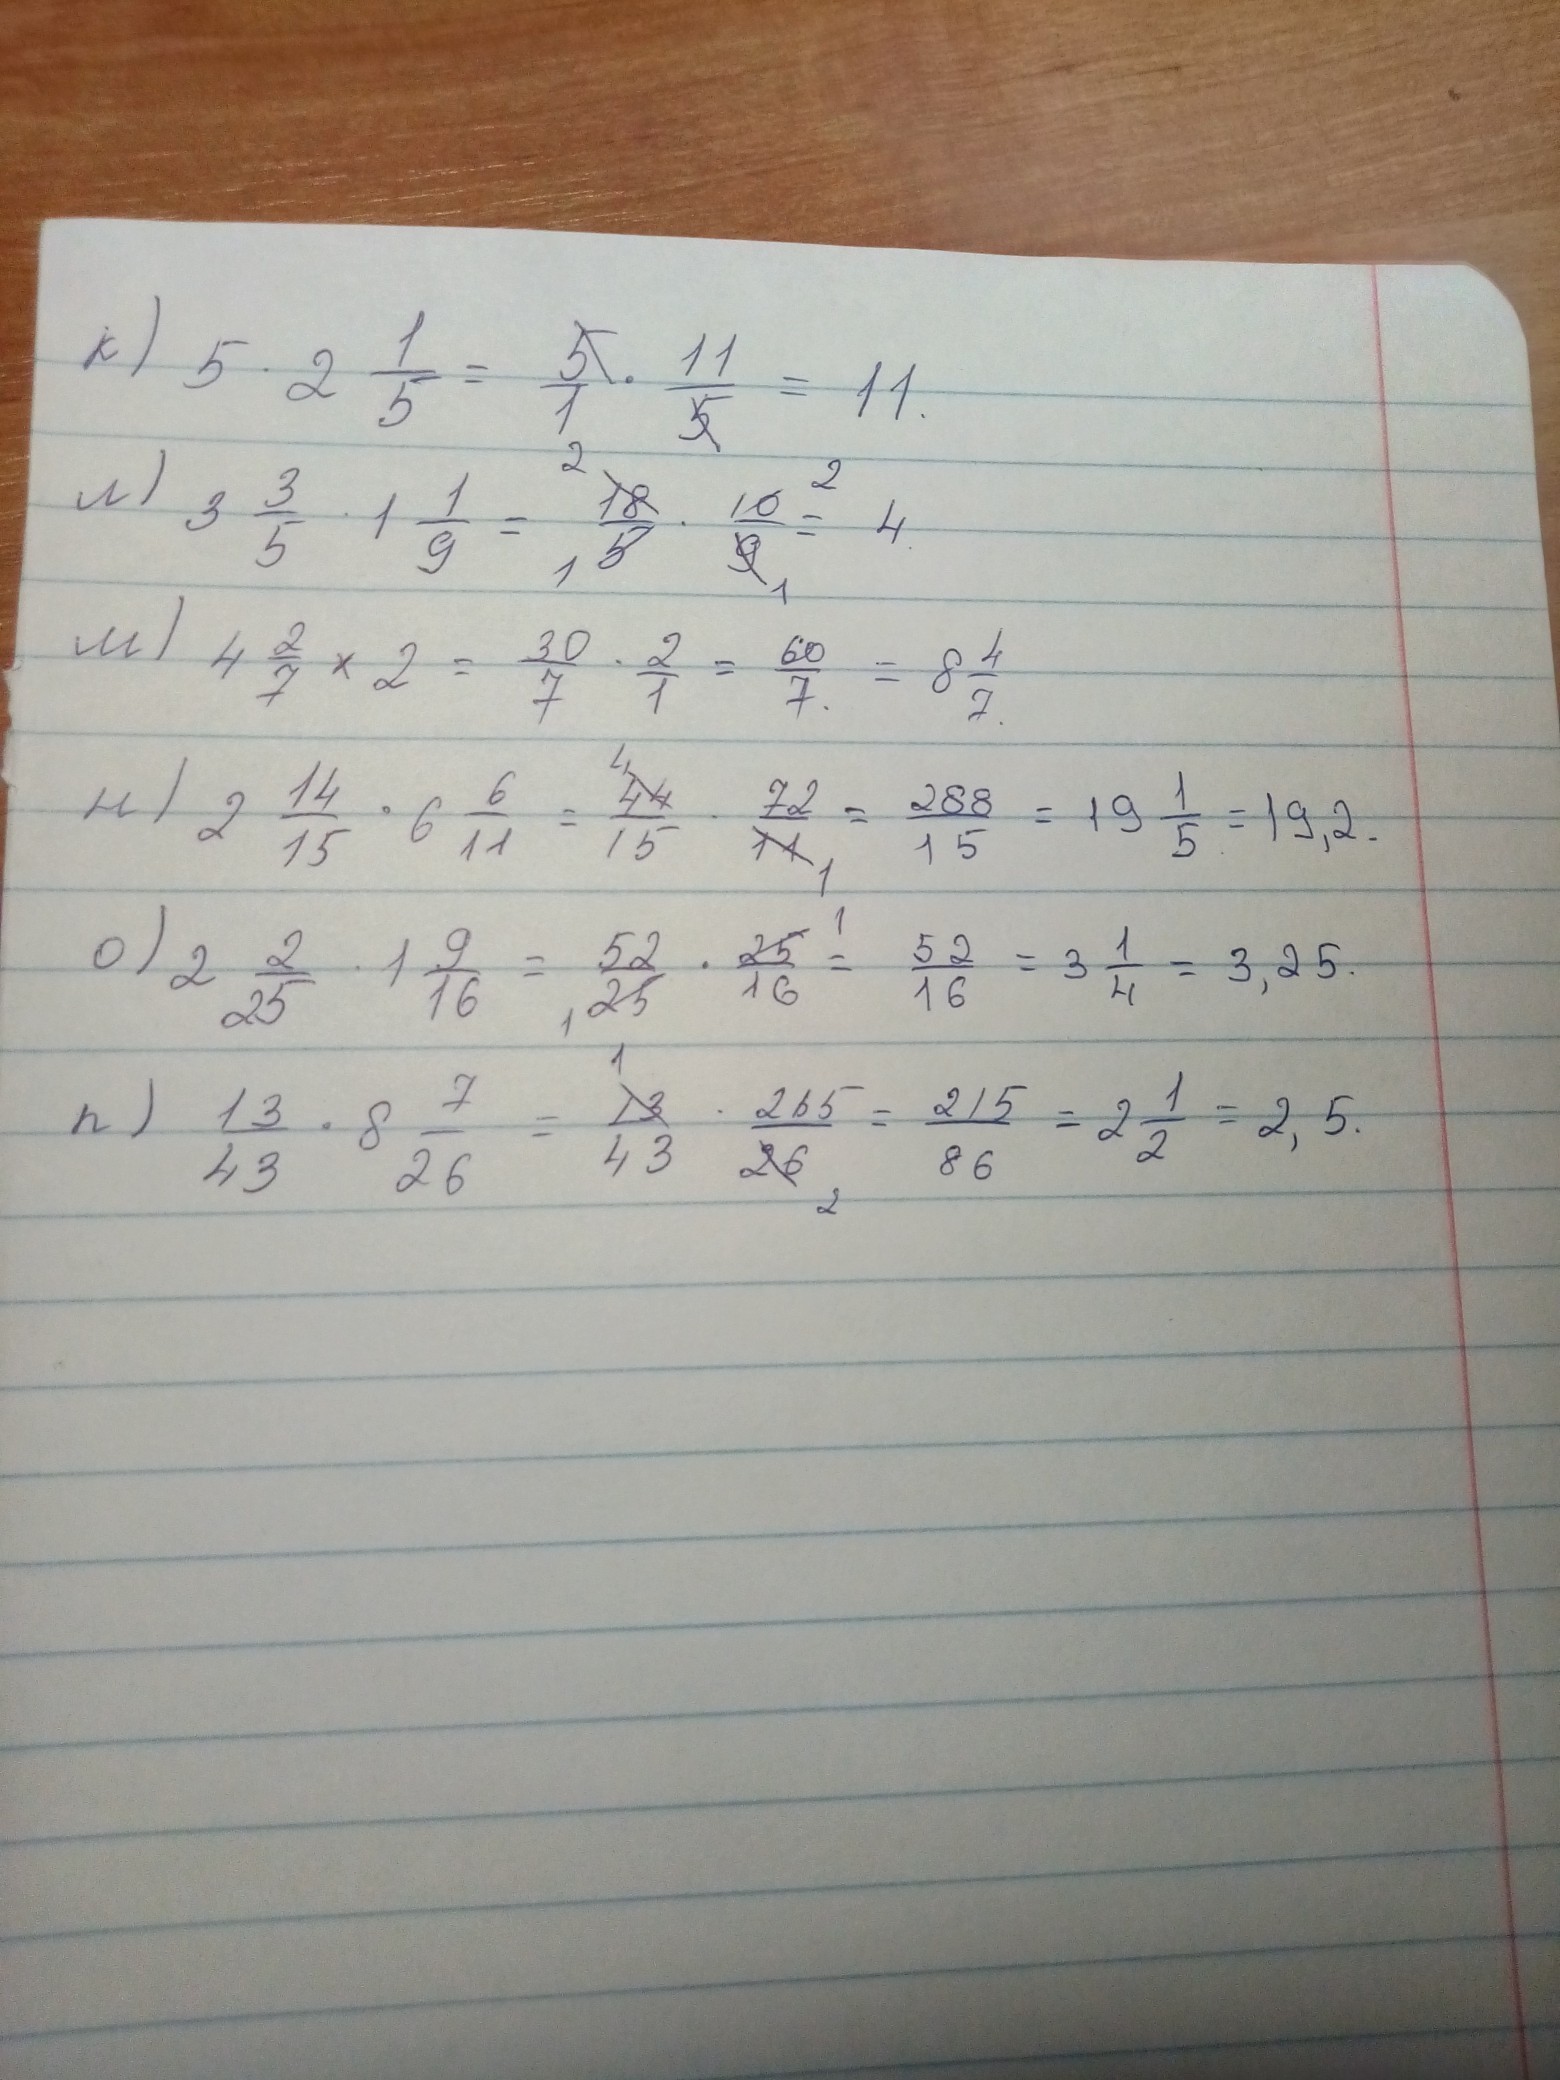 к) 5 · 2 1/5 = 5/1 · 11/5 = 11.
л) 3 3/5 · 1 1/9 = 2 18/5 1 · 10/9 2 1 = 4.
м) 4 2/7 × 2 = 30/7 · 2/1 = 60/7. = 8 4/7.
н) 2 14/15 · 6 6/11 = 4 44/15 · 72/11 1 = 288/15 = 19 1/5 = 19,2.
о) 2 2/25 · 1 9/16 = 52/25 1 · 25/16 1 = 52/16 = 3 1/4 = 3,25.
п) 13/43 · 8 7/26 = 1 13/43 · 215/26 2 = 215/86 = 2 1/2 = 2,5.